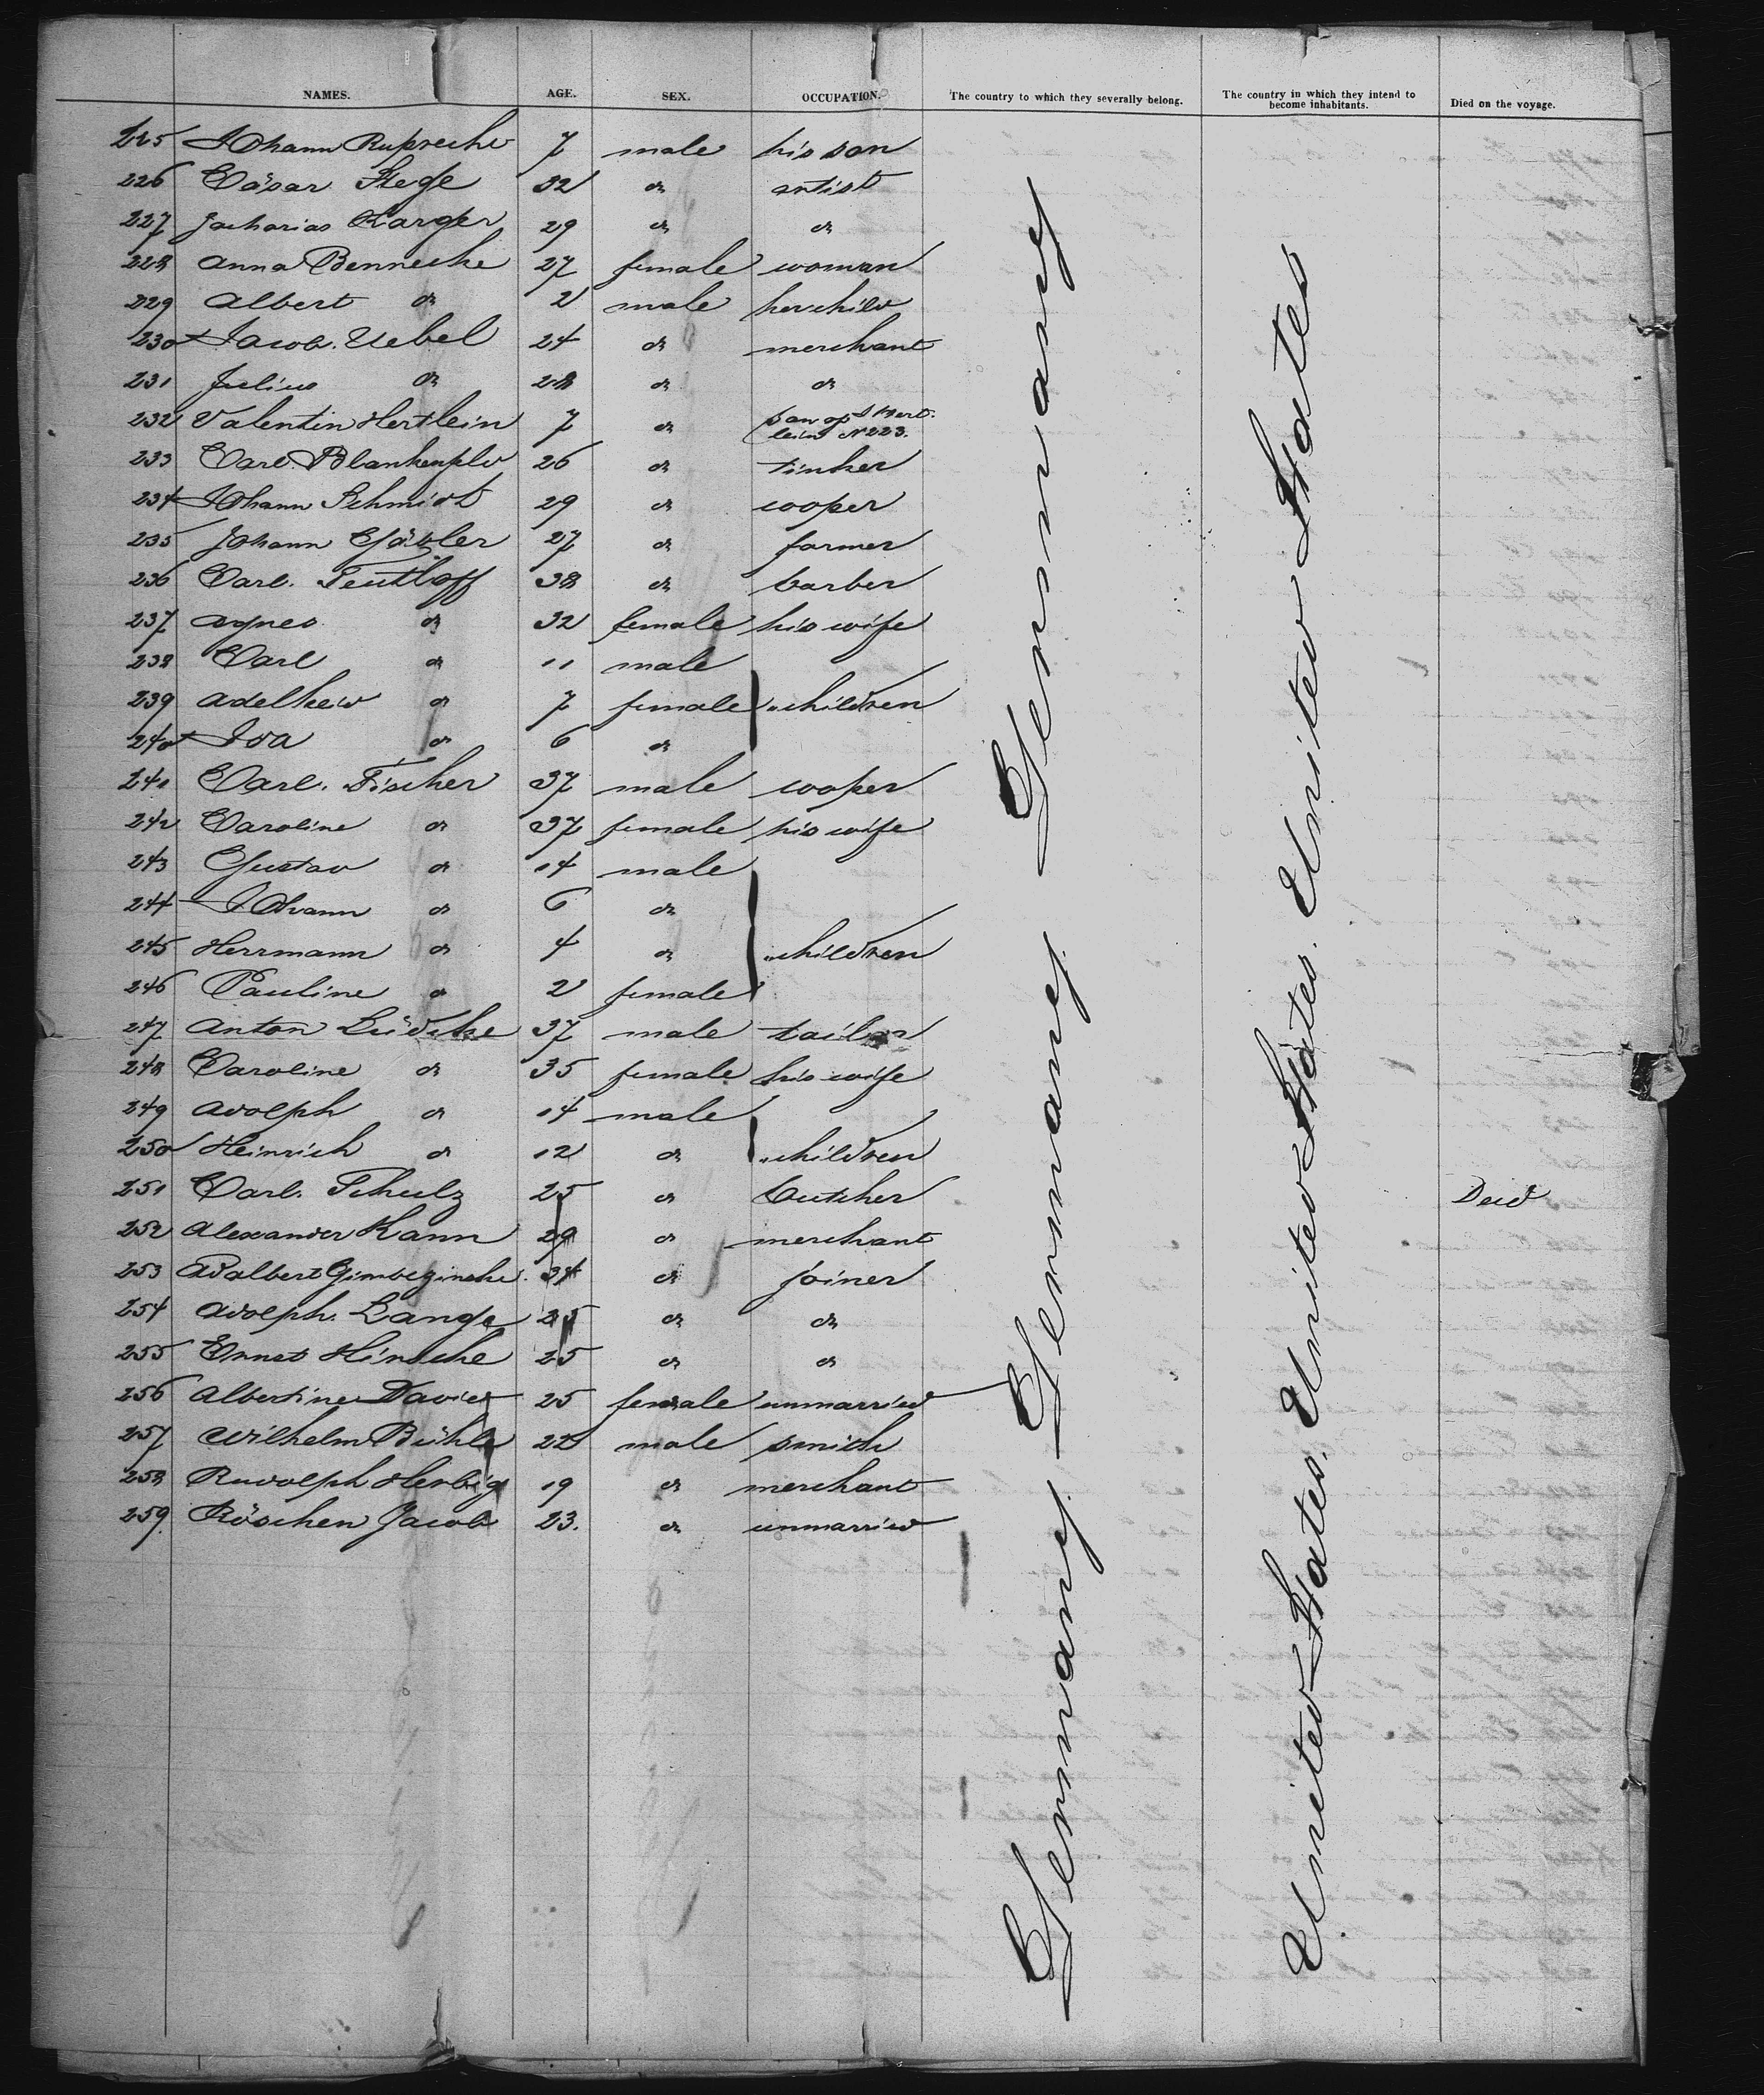 NAMES. AGE. SEX. OCCUPATION. The country to which they severally belong. The country in which they intend to become inhabitants. Died on the voyage.
225 Johann Ruprecht 7 male his son
226 Cäsar Stege 32 do artist
227 Zacharias Karger 29 do do
228 Anna Bennecke 27 female woman
229 Albert do 2 male her child
230 Jacob Uebel 24 do merchant
231 Julius do 28 do do
232 Valentin Hertlein 7 do son of J Hertlein N 223.
233 Carl 26 do tinker
234 Johann Schmidt 29 do cooper
235 Johann 27 do farmer
236 Carl Teutloff 38 do barber
237 Agnes do 32 female his wife
238 Carl do 11 male
239 Adelheid do 7 female children
240 Ida do 6 do
241 Carl Fischer 37 male cooper
242 Caroline do 37 female his wife
243 Gustav do 14 male
244 Johann do 6 do
245 Herrmann do 4 do children
246 Pauline do 2 female
247 Anton Lüdicke 37 male tailor
248 Caroline do 35 female his wife
249 Adolph do 14 male
250 Heinrich do 12 do children
251 Carl Schulz 25 do butcher Deid
252 Alexander Kann 29 do merchant
253 Adalbert 34 do joiner
254 Adolph Lange 25 do do
255 Ernst Hirsche 25 do do
256 Albertine Davier 25 female unmarried
257 Wilhelm Bühle 22 male smith
258 Rudolph Herbig 19 do merchant
259. Röschen Jacob 23. do unmarried
Germany Germany Germany
United States. United States. United States